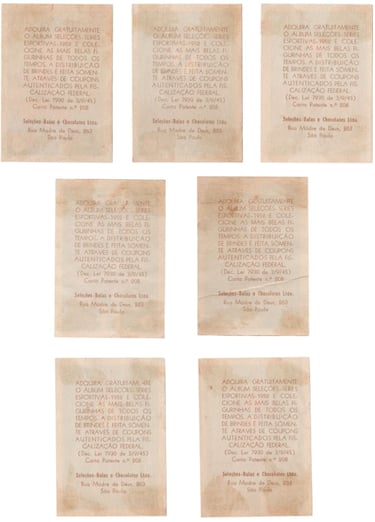 ADQUIRA GRATUITAMENTE
O ALBUM SELEÇÕES-SERIES
ESPORTIVAS-1958 E COLE-
CIONE AS MAIS BELAS FI-
GURINHAS DE TODOS OS
TEMPOS. A DISTRIBUIÇÃO
DE BRINDES É FEITA SÓMEN-
TE ATRAVÉS DE COUPONS
AUTENTICADOS PELA FIS-
CALIZAÇÃO FEDERAL.
(Dec. Lei 7930 de 3/9/45)
Carta Patente n.º 208
Seleções-Balas e Chocolates Ltda.
Rua Madre de Deus, 853
São Paulo
ADQUIRA GRATUITAMENTE
O ALBUM SELEÇÕES-SERIES
ESPORTIVAS-1958 E COLE-
CIONE AS MAIS BELAS FI-
GURINHAS DE TODOS OS
TEMPOS. A DISTRIBUIÇÃO
DE BRINDES É FEITA SÓMEN-
TE ATRAVÉS DE COUPONS
AUTENTICADOS PELA FIS-
CALIZAÇÃO FEDERAL.
(Dec. Lei 7930 de 3/9/45)
Carta Patente n.º 208
Seleções-Balas e Chocolates Ltda.
Rua Madre de Deus, 853
São Paulo
ADQUIRA GRATUITAMENTE
O ALBUM SELEÇÕES-SERIES
ESPORTIVAS-1958 E COLE-
CIONE AS MAIS BELAS FI-
GURINHAS DE TODOS OS
TEMPOS. A DISTRIBUIÇÃO
DE BRINDES É FEITA SÓMEN-
TE ATRAVÉS DE COUPONS
AUTENTICADOS PELA FIS-
CALIZAÇÃO FEDERAL.
(Dec. Lei 7930 de 3/9/45)
Carta Patente n.º 208
Seleções-Balas e Chocolates Ltda.
Rua Madre de Deus, 853
São Paulo
ADQUIRA GRATUITAMENTE
O ALBUM SELEÇÕES-SERIES
ESPORTIVAS-1958 E COLE-
CIONE AS MAIS BELAS FI-
GURINHAS DE TODOS OS
TEMPOS. A DISTRIBUIÇÃO
DE BRINDES É FEITA SÓMEN-
TE ATRAVÉS DE COUPONS
AUTENTICADOS PELA FIS-
CALIZAÇÃO FEDERAL.
(Dec. Lei 7930 de 3/9/45)
Carta Patente n.º 208
Seleções-Balas e Chocolates Ltda.
Rua Madre de Deus, 853
São Paulo
ADQUIRA GRATUITAMENTE
O ALBUM SELEÇÕES-SERIES
ESPORTIVAS-1958 E COLE-
CIONE AS MAIS BELAS FI-
GURINHAS DE TODOS OS
TEMPOS. A DISTRIBUIÇÃO
DE BRINDES É FEITA SÓMEN-
TE ATRAVÉS DE COUPONS
AUTENTICADOS PELA FIS-
CALIZAÇÃO FEDERAL.
(Dec. Lei 7930 de 3/9/45)
Carta Patente n.º 208
Seleções-Balas e Chocolates Ltda.
Rua Madre de Deus, 853
São Paulo
ADQUIRA GRATUITAMENTE
O ALBUM SELEÇÕES-SERIES
ESPORTIVAS-1958 E COLE-
CIONE AS MAIS BELAS FI-
GURINHAS DE TODOS OS
TEMPOS. A DISTRIBUIÇÃO
DE BRINDES É FEITA SÓMEN-
TE ATRAVÉS DE COUPONS
AUTENTICADOS PELA FIS-
CALIZAÇÃO FEDERAL.
(Dec. Lei 7930 de 3/9/45)
Carta Patente n.º 208
Seleções-Balas e Chocolates Ltda.
Rua Madre de Deus, 853
São Paulo
ADQUIRA GRATUITAMENTE
O ALBUM SELEÇÕES-SERIES
ESPORTIVAS-1958 E COLE-
CIONE AS MAIS BELAS FI-
GURINHAS DE TODOS OS
TEMPOS. A DISTRIBUIÇÃO
DE BRINDES É FEITA SÓMEN-
TE ATRAVÉS DE COUPONS
AUTENTICADOS PELA FIS-
CALIZAÇÃO FEDERAL.
(Dec. Lei 7930 de 3/9/45)
Carta Patente n.º 208
Seleções-Balas e Chocolates Ltda.
Rua Madre de Deus, 853
São Paulo